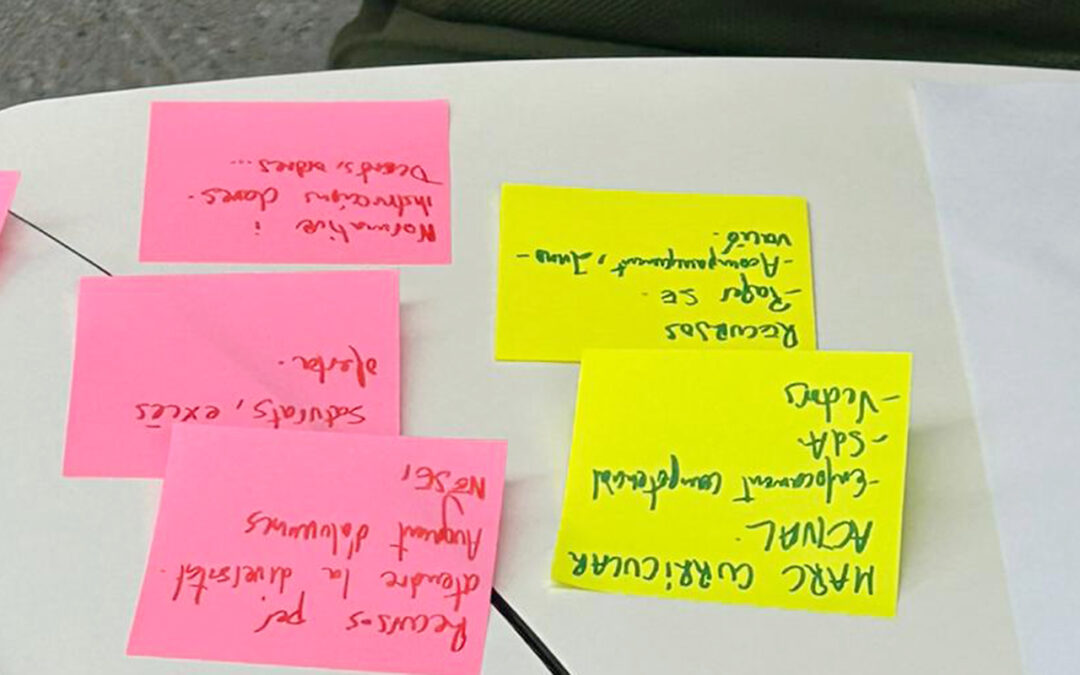 Normativa i
instruccions clares.
Decrets, ordres...
saturats, excés
oferta.
Recursos per
atendre la diversitat.
Augment d'alumnes
NESE,
RECURSOS
- Paper SE
- Acompanyament,
MARC CURRICULAR
ACTUAL.
- Enfocament competencial
- SdA
- Vectors